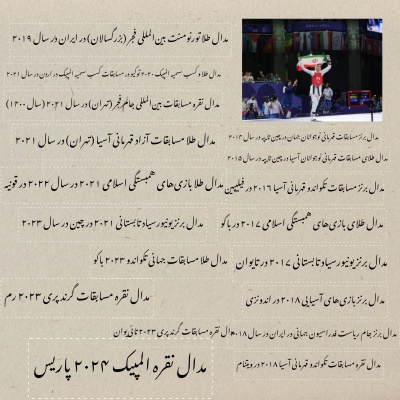 مدال برنز مسابقات قهرمانی نوجوانان جهان در چین تایپه در سال ۲۰۱۴
مدال طلای مسابقات قهرمانی نوجوانان آسیا در چین تایپه در سال ۲۰۱۵
مدال برنز مسابقات تکواندو قهرمانی آسیا ۲۰۱۶ در فیلیپین
مدال طلای بازی‌های همبستگی اسلامی ۲۰۱۷ در باکو
مدال برنز یونیورسیاد تابستانی ۲۰۱۷ در تایوان
مدال برنز بازی‌های آسیایی ۲۰۱۸ در اندونزی
مدال برنز جام ریاست فدراسیون جهانی در ایران در سال ۲۰۱۸
مدال نقره مسابقات تکواندو قهرمانی آسیا ۲۰۱۸ در ویتنام
مدال طلا تورنومنت بین‌المللی فجر (بزرگسالان) در ایران در سال ۲۰۱۹
مدال طلا و کسب سهمیه المپیک ۲۰۲۰ توکیو در مسابقات کسب سهمیه المپیک در اردن در سال ۲۰۲۱
مدال نقره مسابقات بین‌المللی جام فجر (تهران) در سال ۲۰۲۱ (سال ۱۴۰۰)
مدال طلا مسابقات آزاد قهرمانی آسیا (تهران) در سال ۲۰۲۱
مدال طلا بازی‌های همبستگی اسلامی ۲۰۲۱ در سال ۲۰۲۲ در قونیه
مدال برنز یونیورسیاد تابستانی ۲۰۲۱ در چین در سال ۲۰۲۳
مدال طلا مسابقات جهانی تکواندو ۲۰۲۳ باکو
مدال نقره مسابقات گرند پری ۲۰۲۳ رم
مدال نقره مسابقات گرند پری ۲۰۲۳ تائی‌یوان
مدال نقره المپیک ۲۰۲۴ پاریس